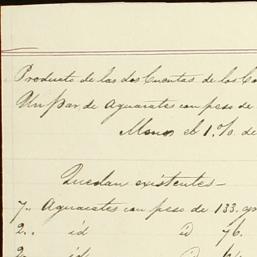 Producto de las dos Cuentas de los Co
Un par de Aguacates con peso de
Menos el 1% de
Quedan existentes—
7.. Aguacates con peso de 133. gr
2.. id id 76.
2.. id